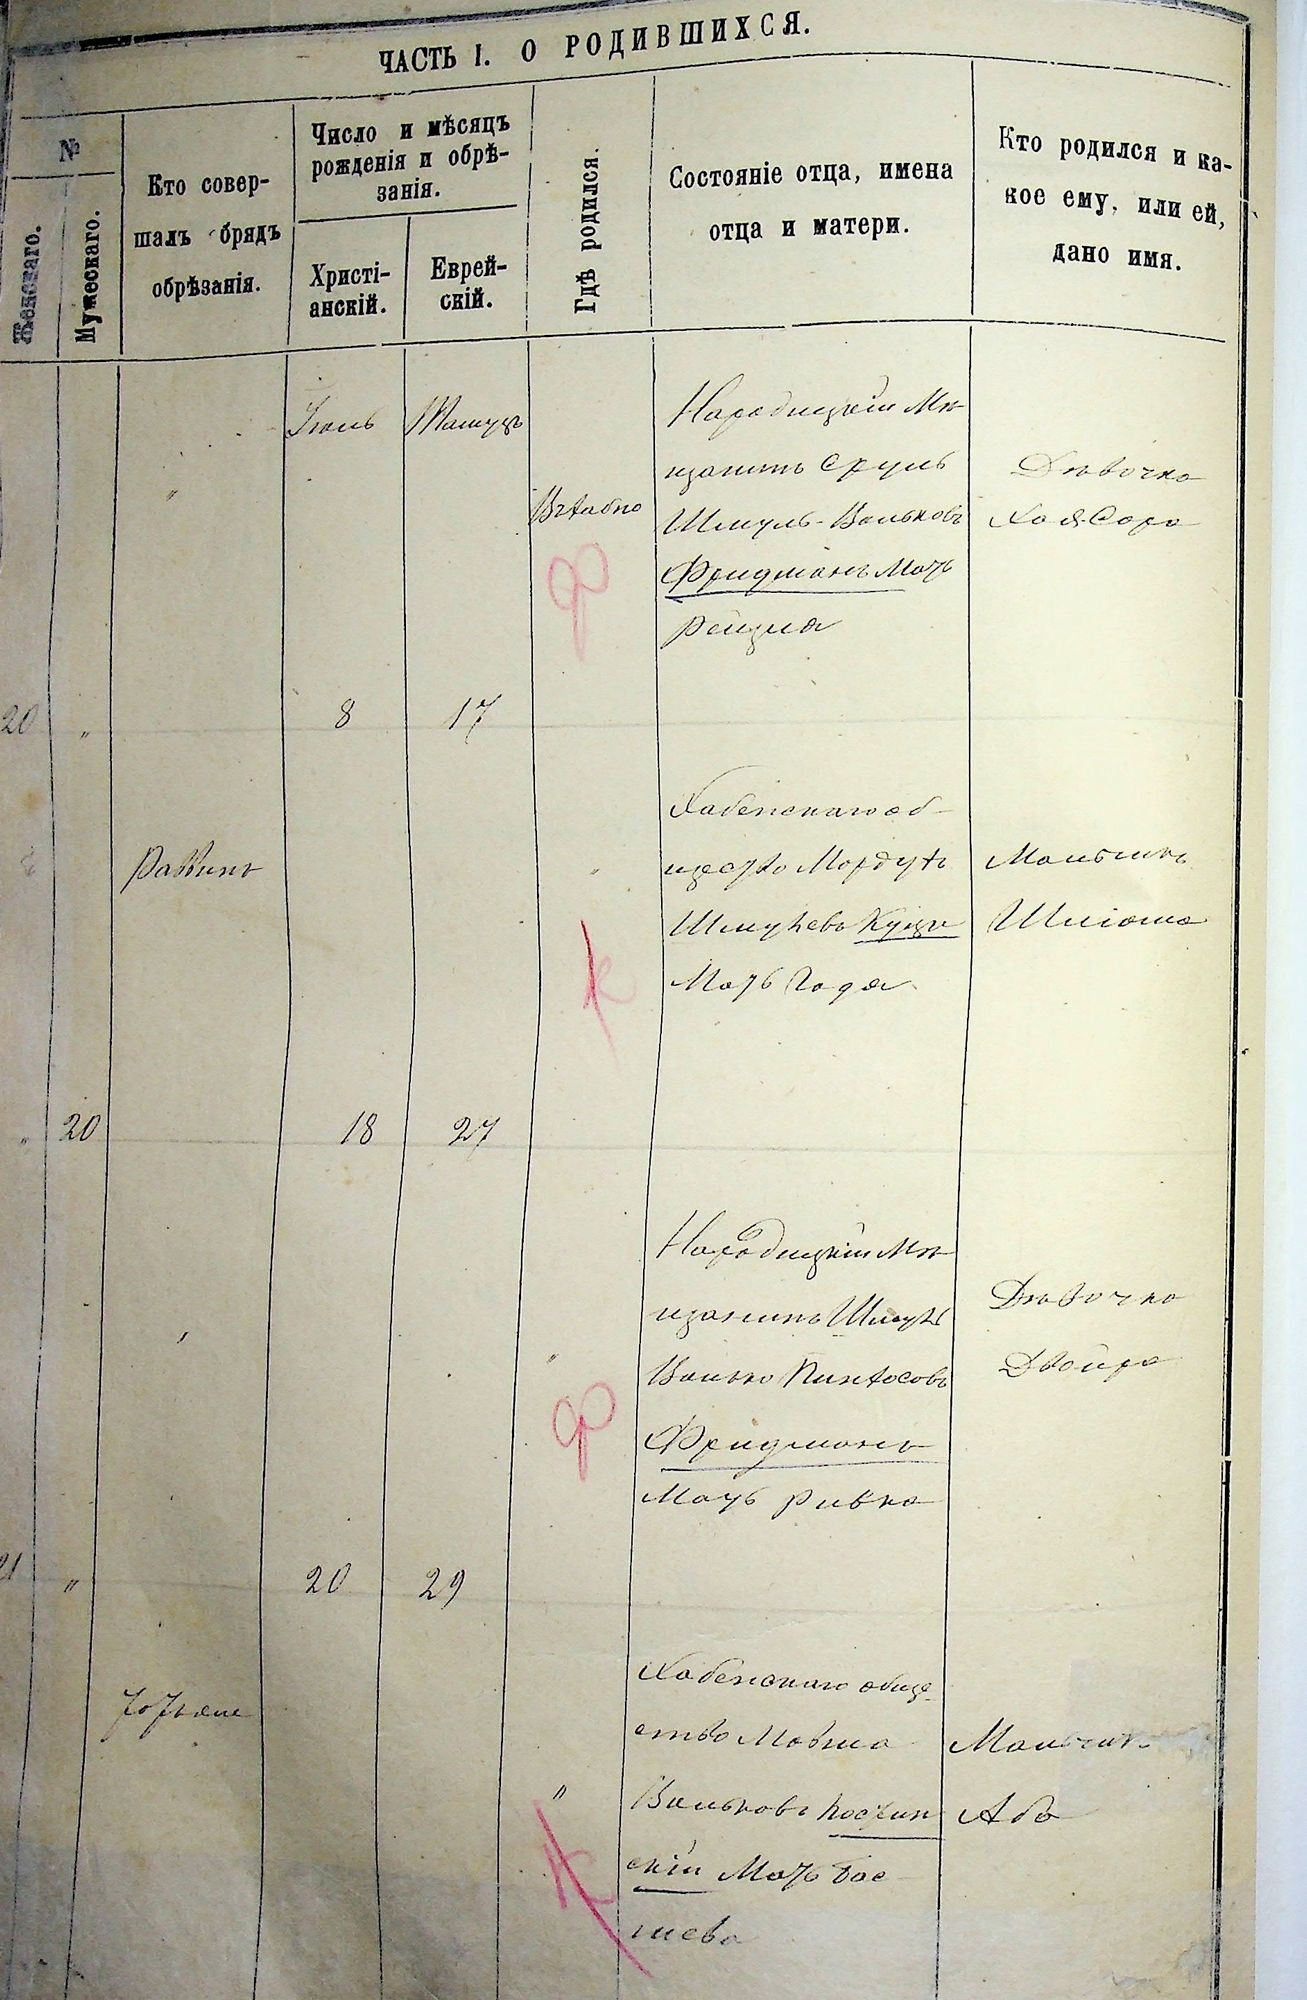 ЧАСТЬ I. О РОДИВШИХСЯ.
№
Женскаго.
Мужескаго.
Кто совер-
шалъ обрядъ
обрѣзанія.
Число и мѣсяцъ
рожденія и обрѣ-
занія.
Христі-
анскій.
Еврей-
скій.
Гдѣ родился.
Состояніе отца, имена
отца и матери.
Кто родился и ка-
кое ему, или ей,
дано имя.
Народицкій Мѣ-
щанинъ Сруль
Шмуль-Вольковъ
Фридманъ Мать
Рейзля
Дѣвочка
Хая Сора
20 " 8 17
Раввинъ
Хабенскаго об-
щество Мордухъ
Шмулево
Мать Годя
Мальчикъ
Шліома
" 20 18 27
Народицкій Мѣ-
щанинъ Шмуль
Волько Пинхосовъ
Фридманъ
Мать Ривка
Дѣвочка
Двойра
21 " 20 29
Хабенскаго обще-
ство Мовша
Вольковъ
скій Мать Бас
шева
Мальчикъ
Аба